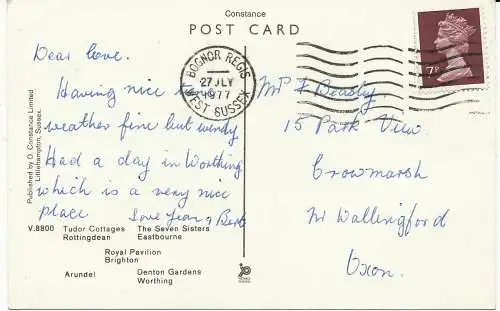 Constance
POST CARD
BOGNOR REGIS
27 JLY
1977
WEST SUSSEX
7P
Dear love.
Having nice time
weather fine but windy
Had a day in Worthing
which is a very nice
place. Love Jean & Bert
Mr F Beasley
15 Park View.
Crowmarsh
Nr Wallingford
Oxon.
Published by D. Constance Limited
Littlehampton, Sussex.
V.8800 Tudor Cottages The Seven Sisters
Rottingdean Eastbourne
Royal Pavilion
Brighton
Arundel Denton Gardens
Worthing